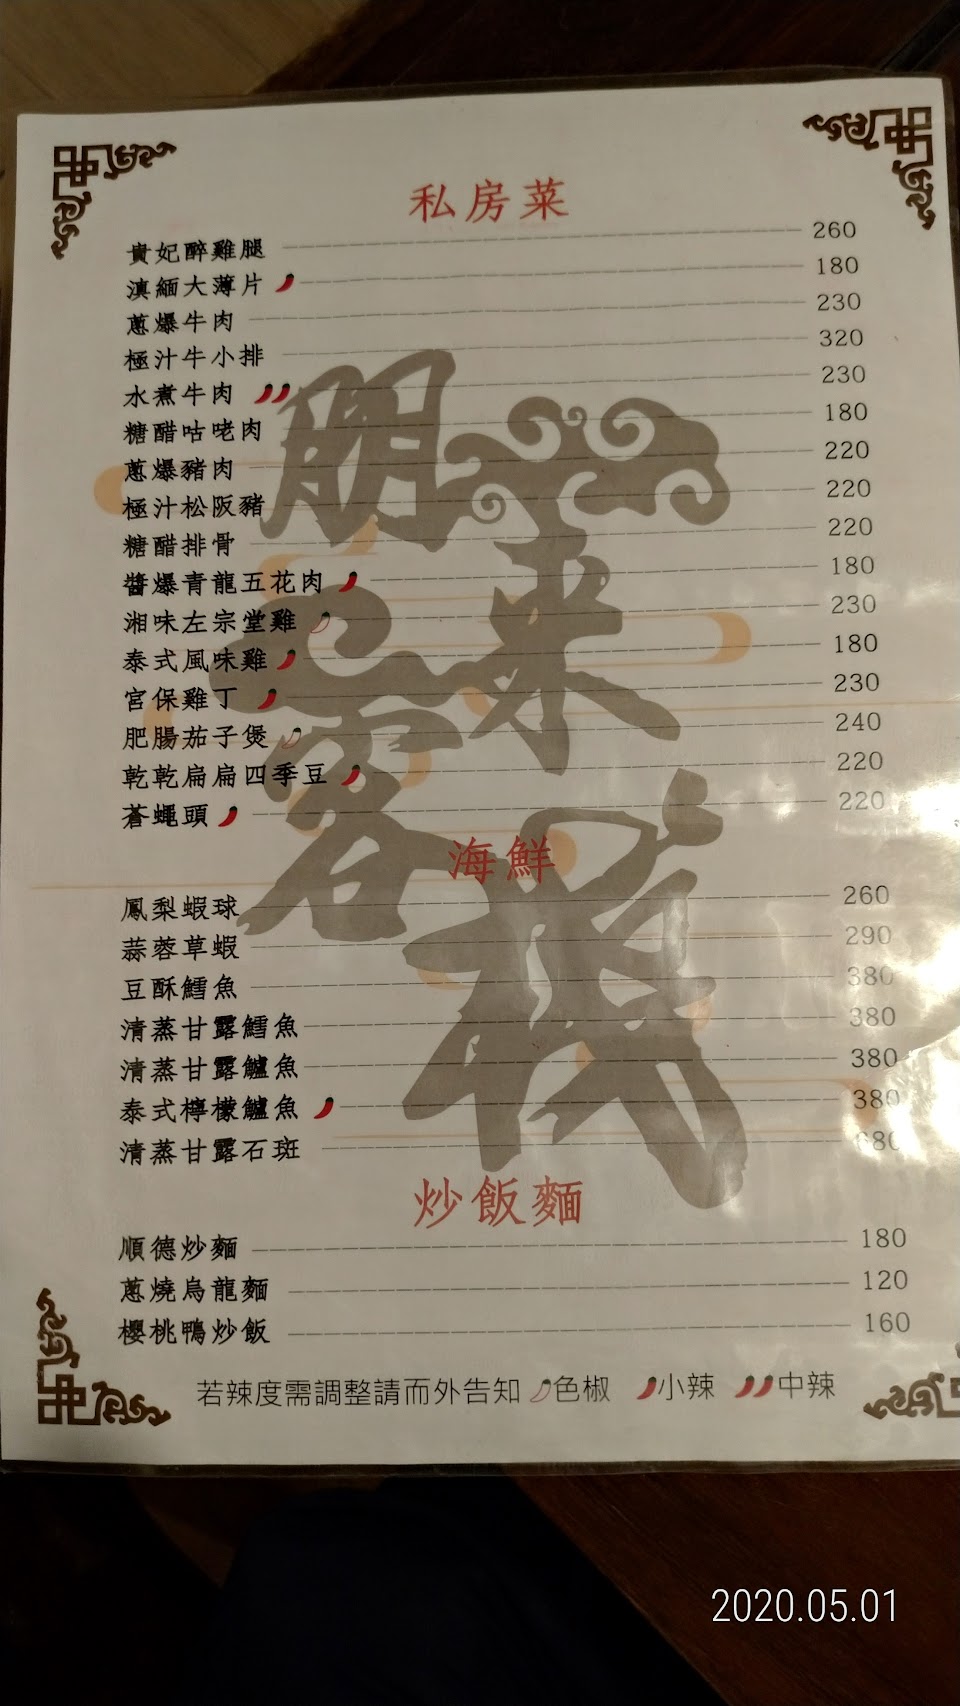 私房菜
貴妃醉雞腿 260
滇緬大薄片 180
蔥爆牛肉 230
極汁牛小排 320
水煮牛肉 230
糖醋咕咾肉 180
蔥爆豬肉 220
極汁松阪豬 220
糖醋排骨 220
醬爆青龍五花肉 180
湘味左宗堂雞 230
泰式風味雞 180
宮保雞丁 230
肥腸茄子煲 240
乾乾扁扁四季豆 220
蒼蠅頭 220
朋來客棧
海鮮
鳳梨蝦球 260
蒜蓉草蝦 290
豆酥鱈魚 380
清蒸甘露鱈魚 380
清蒸甘露鱸魚 380
泰式檸檬鱸魚 380
清蒸甘露石斑
炒飯麵
順德炒麵 180
蔥燒烏龍麵 120
櫻桃鴨炒飯 160
若辣度需調整請而外告知 色椒 小辣 中辣
2020.05.01